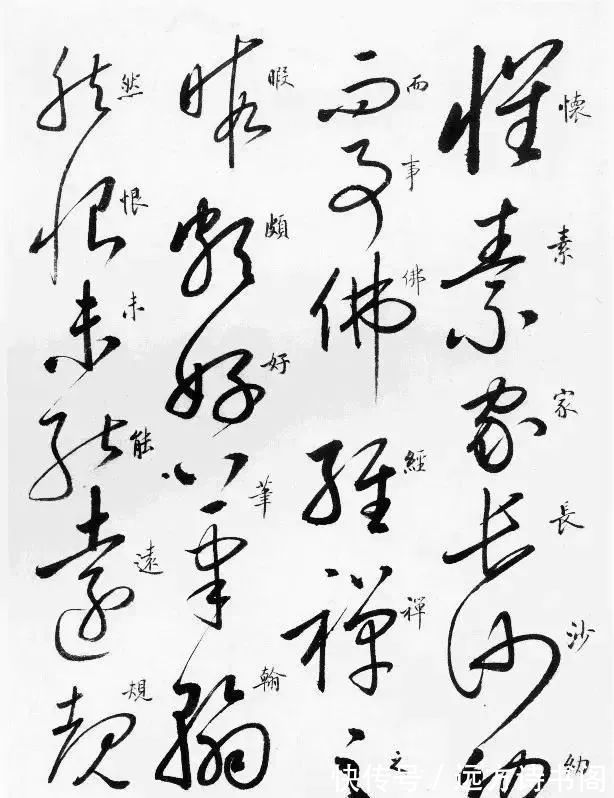 懷素家長沙幼
而事佛經禪之
暇頗好筆翰
然恨未能遠規
快传号 / 远方诗书阁